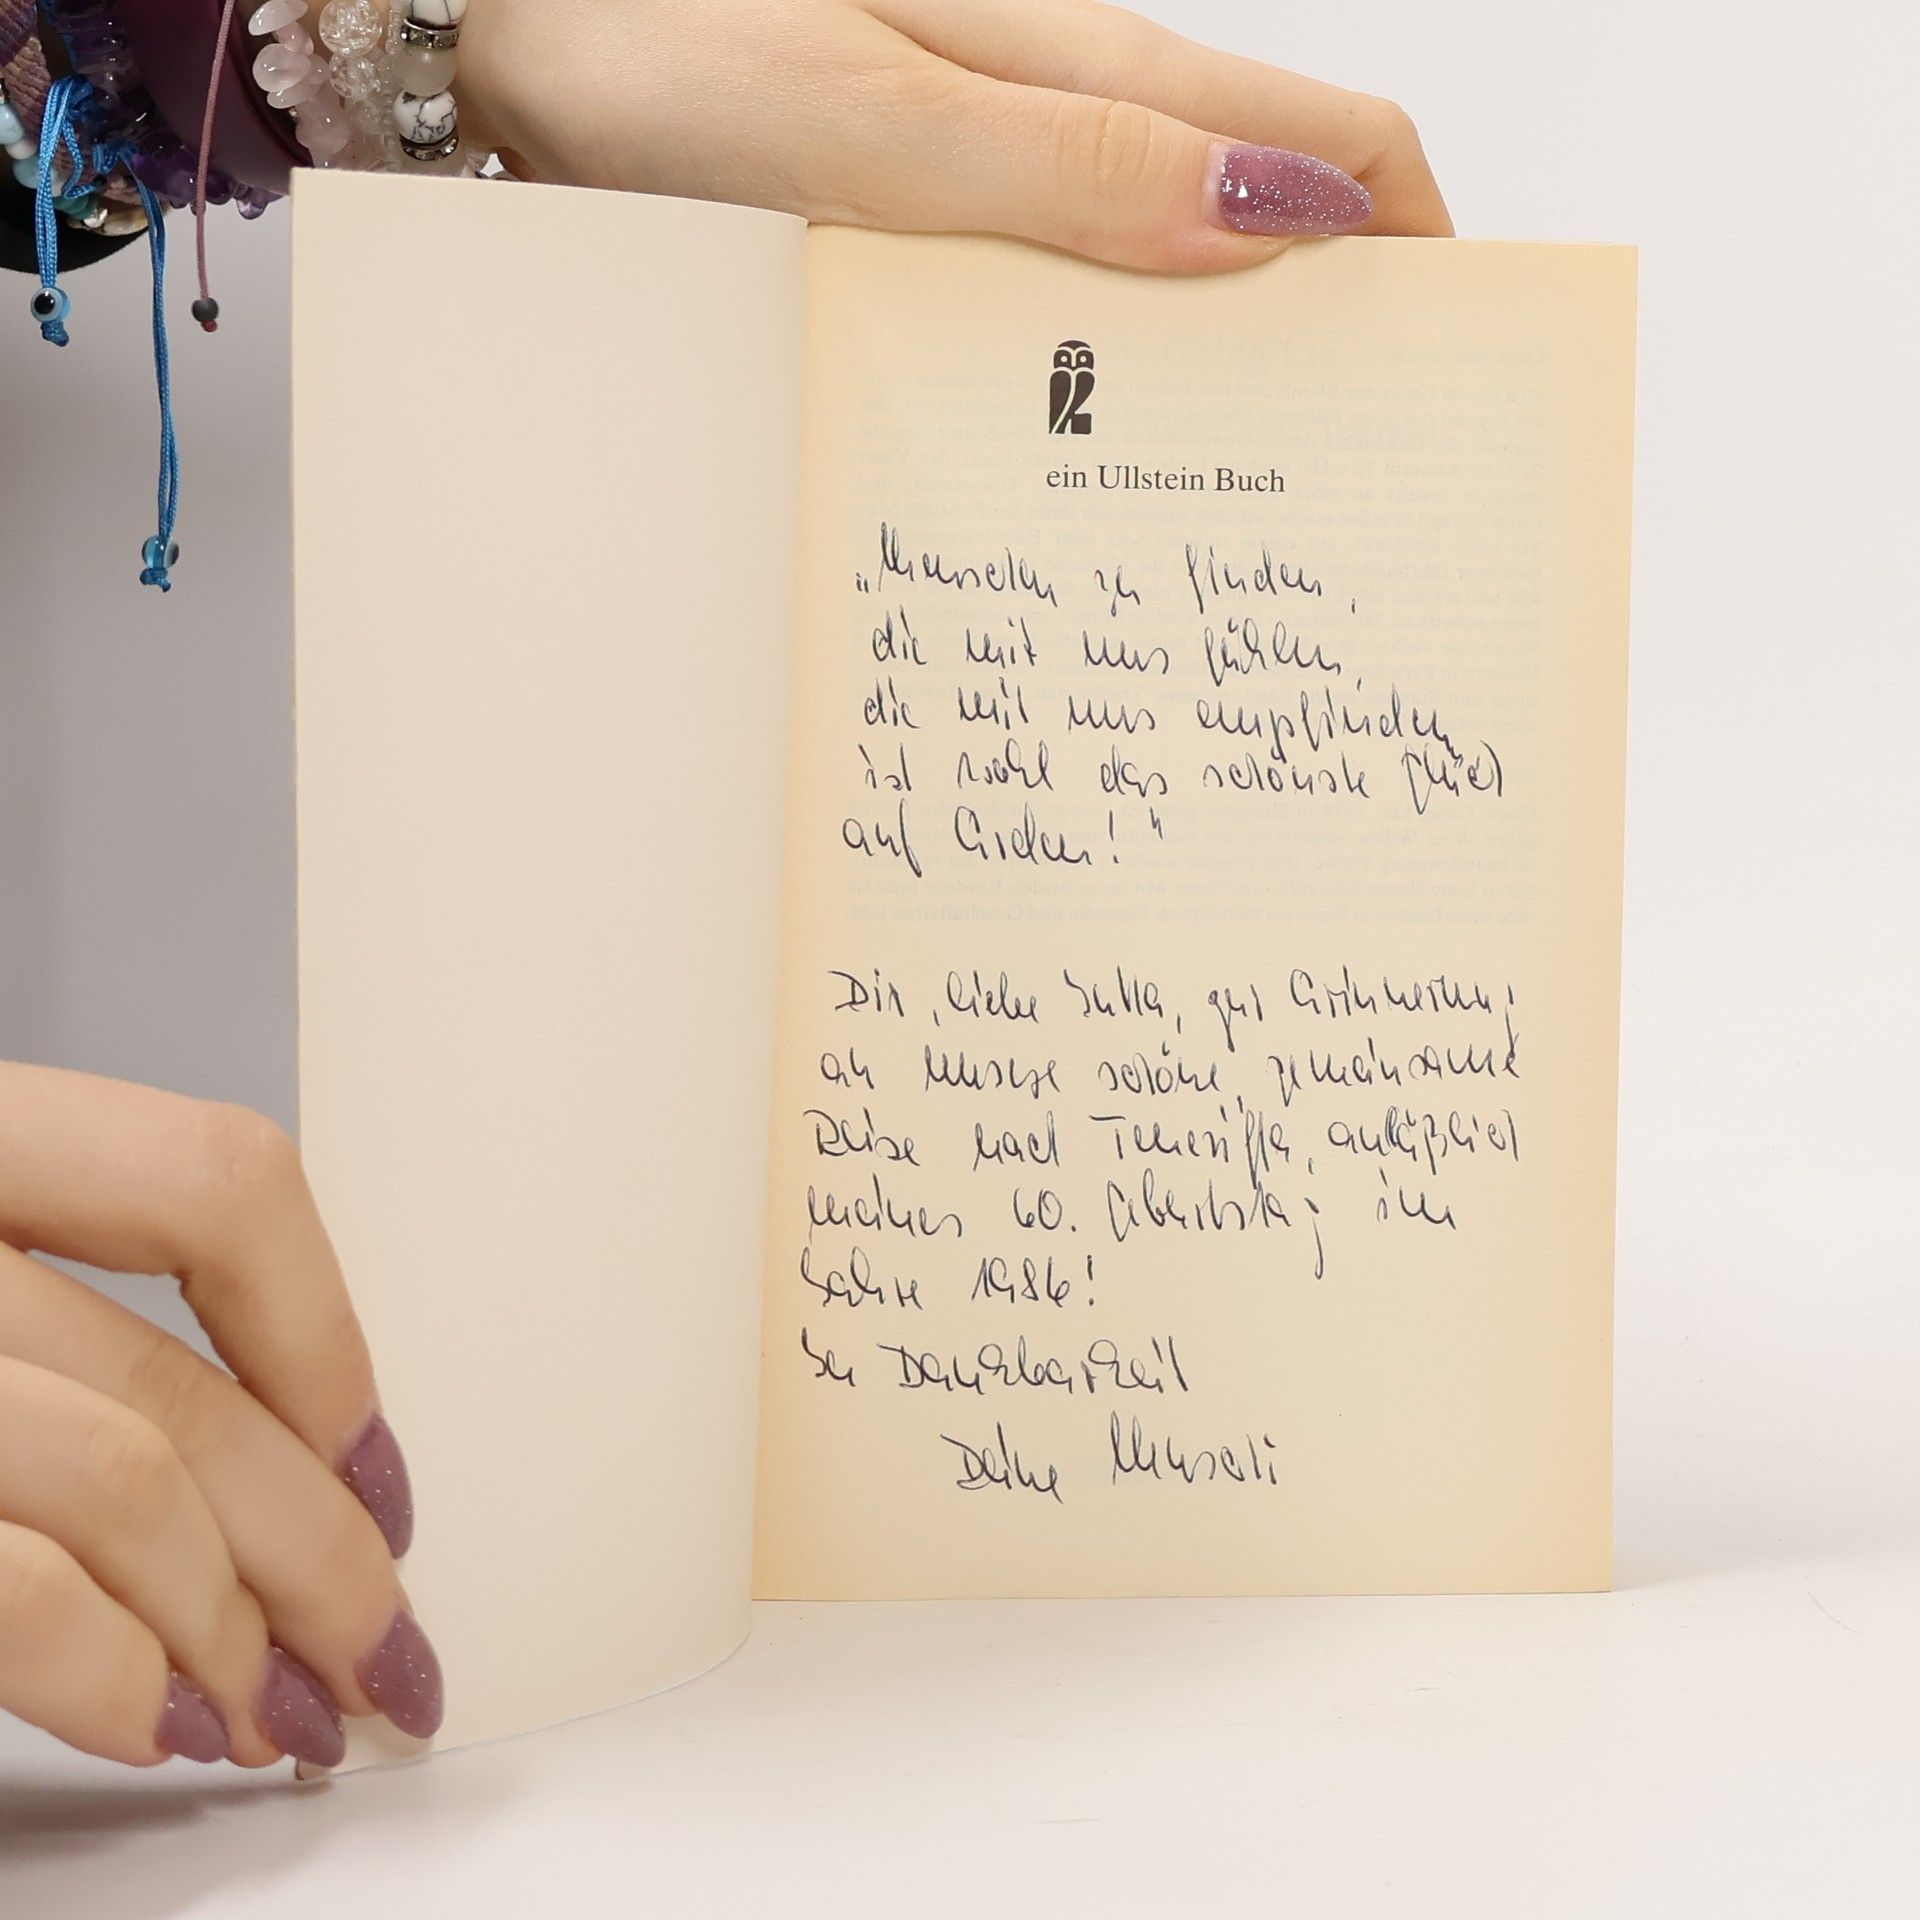 ein Ullstein Buch
„Menschen zu finden,
die mit uns fühlen,
die mit uns empfinden,
ist wohl das schönste Glück
auf Erden!"
Dir, liebe Jutta, zur Erinnerung
an unsere schöne, gemeinsame
Reise nach Teneriffa, anläßlich
meines 60. Geburtstag im
Jahre 1986!
In Dankbarkeit
Deine